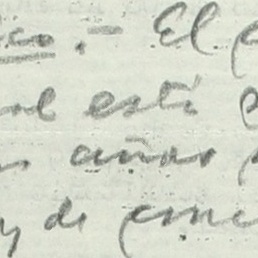 co.- El
al está
años
y de conc